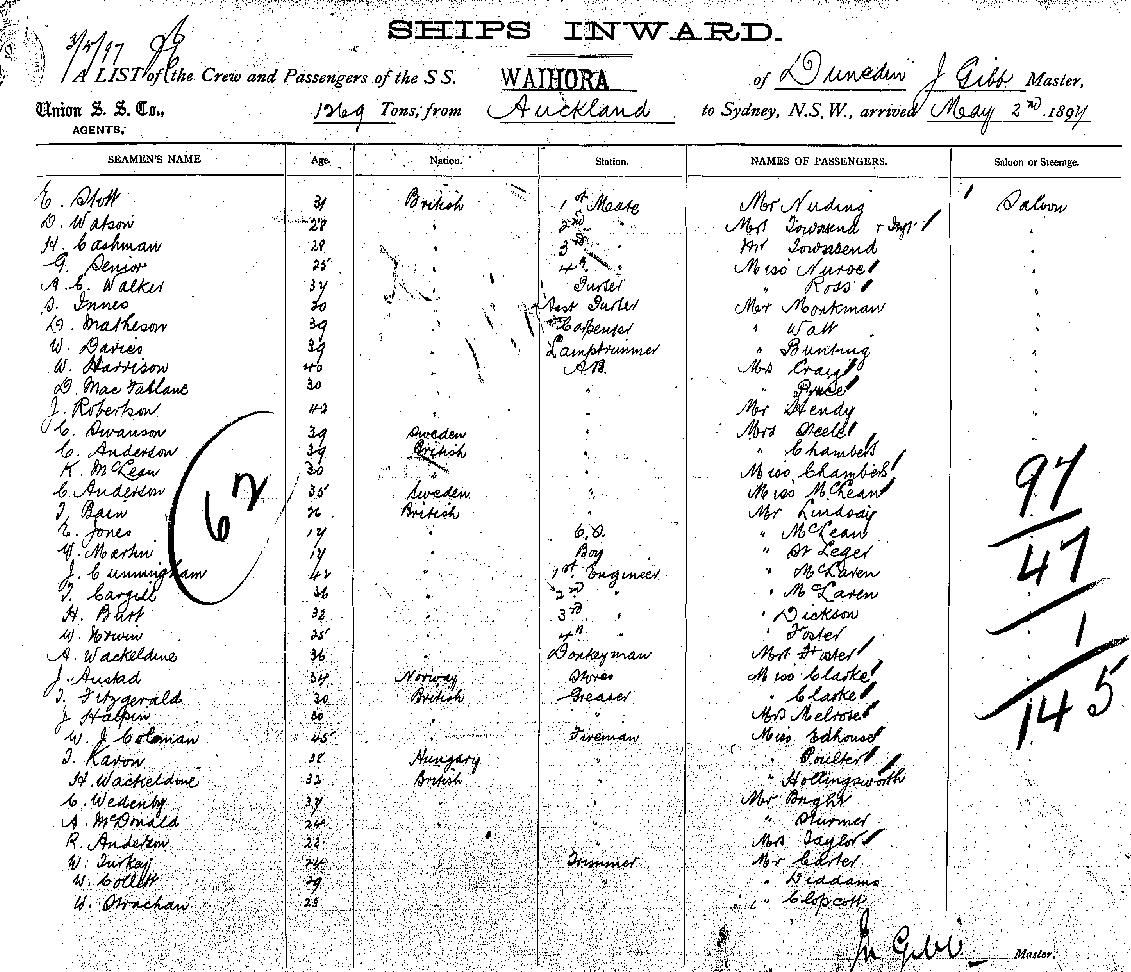 SHIPS INWARD.
3/5/97
A LIST of the Crew and Passengers of the S S. WAIHORA of Dunedin J Gibb Master,
Union S. S. Co., 1269 Tons, from Auckland to Sydney, N.S.W., arrived May 2nd 1897
AGENTS,
SEAMEN'S NAME Age. Nation. Station. NAMES OF PASSENGERS. Saloon or Steerage.
E. Stott 31 British 1st Mate Mr Nuding 1 Saloon
D. Watson 28 " 2nd " Mrs Townsend "
H. Cashman 28 " 3rd " Mr Townsend "
G. Senior 25 " 4th " Miss Nurse "
A. C. Walker 34 " Purser " Ross "
S. Innes 20 " Asst Purser Mr Monkman "
D. Matheson 39 " Carpenter " Watt "
W. Davies 39 " Lamptrimmer " Bunting "
W. Harrison 40 " A.B. Mrs Craig "
D. Mac Farlane 30 " " " Price "
J. Robertson 42 " " Mr Hendy "
C. Swanson 39 Sweden " Mrs Steele "
C. Anderson 39 British " " Chambers
K. McLean 30 " " Miss Chambers
C. Anderson 35 Sweden " Miss McLean 97
T. Bain 26 British " Mr Lindsay
62
E. Jones 17 " O.S. " McLean
Martin 17 " Boy " St Leger 47
J. Cunningham 42 " 1st Engineer " McLaren
T. Cargill 36 " 2nd " " McLaren
H. Burt 32 " 3rd " " Dickson
W. Irwin 25 " 4th " " Foster 1
A. Wackeldine 36 " Donkeyman Mrs Foster
J. Austad 34 Norway Stores Miss Clarke
T. Fitzgerald 30 British Greaser " Clarke 145
J. Halpin 30 " " Mrs Melrose
W. J. Coleman 45 " Fireman Miss Edhouse
T. Karon 32 Hungary " " Poulter
H. Wackeldine 32 British " " Hollingsworth
C. Wedenby 37 " " Mr Bright
A. McDonald 24 " " " Sturmer
R. Anderson 22 " " Mrs Taylor
W. Turkey 24 " Trimmer Mr Carter
W. Collett 29 " " " Diddams
W. Strachan 23 " " " Clopcott
Jn Gibb Master.